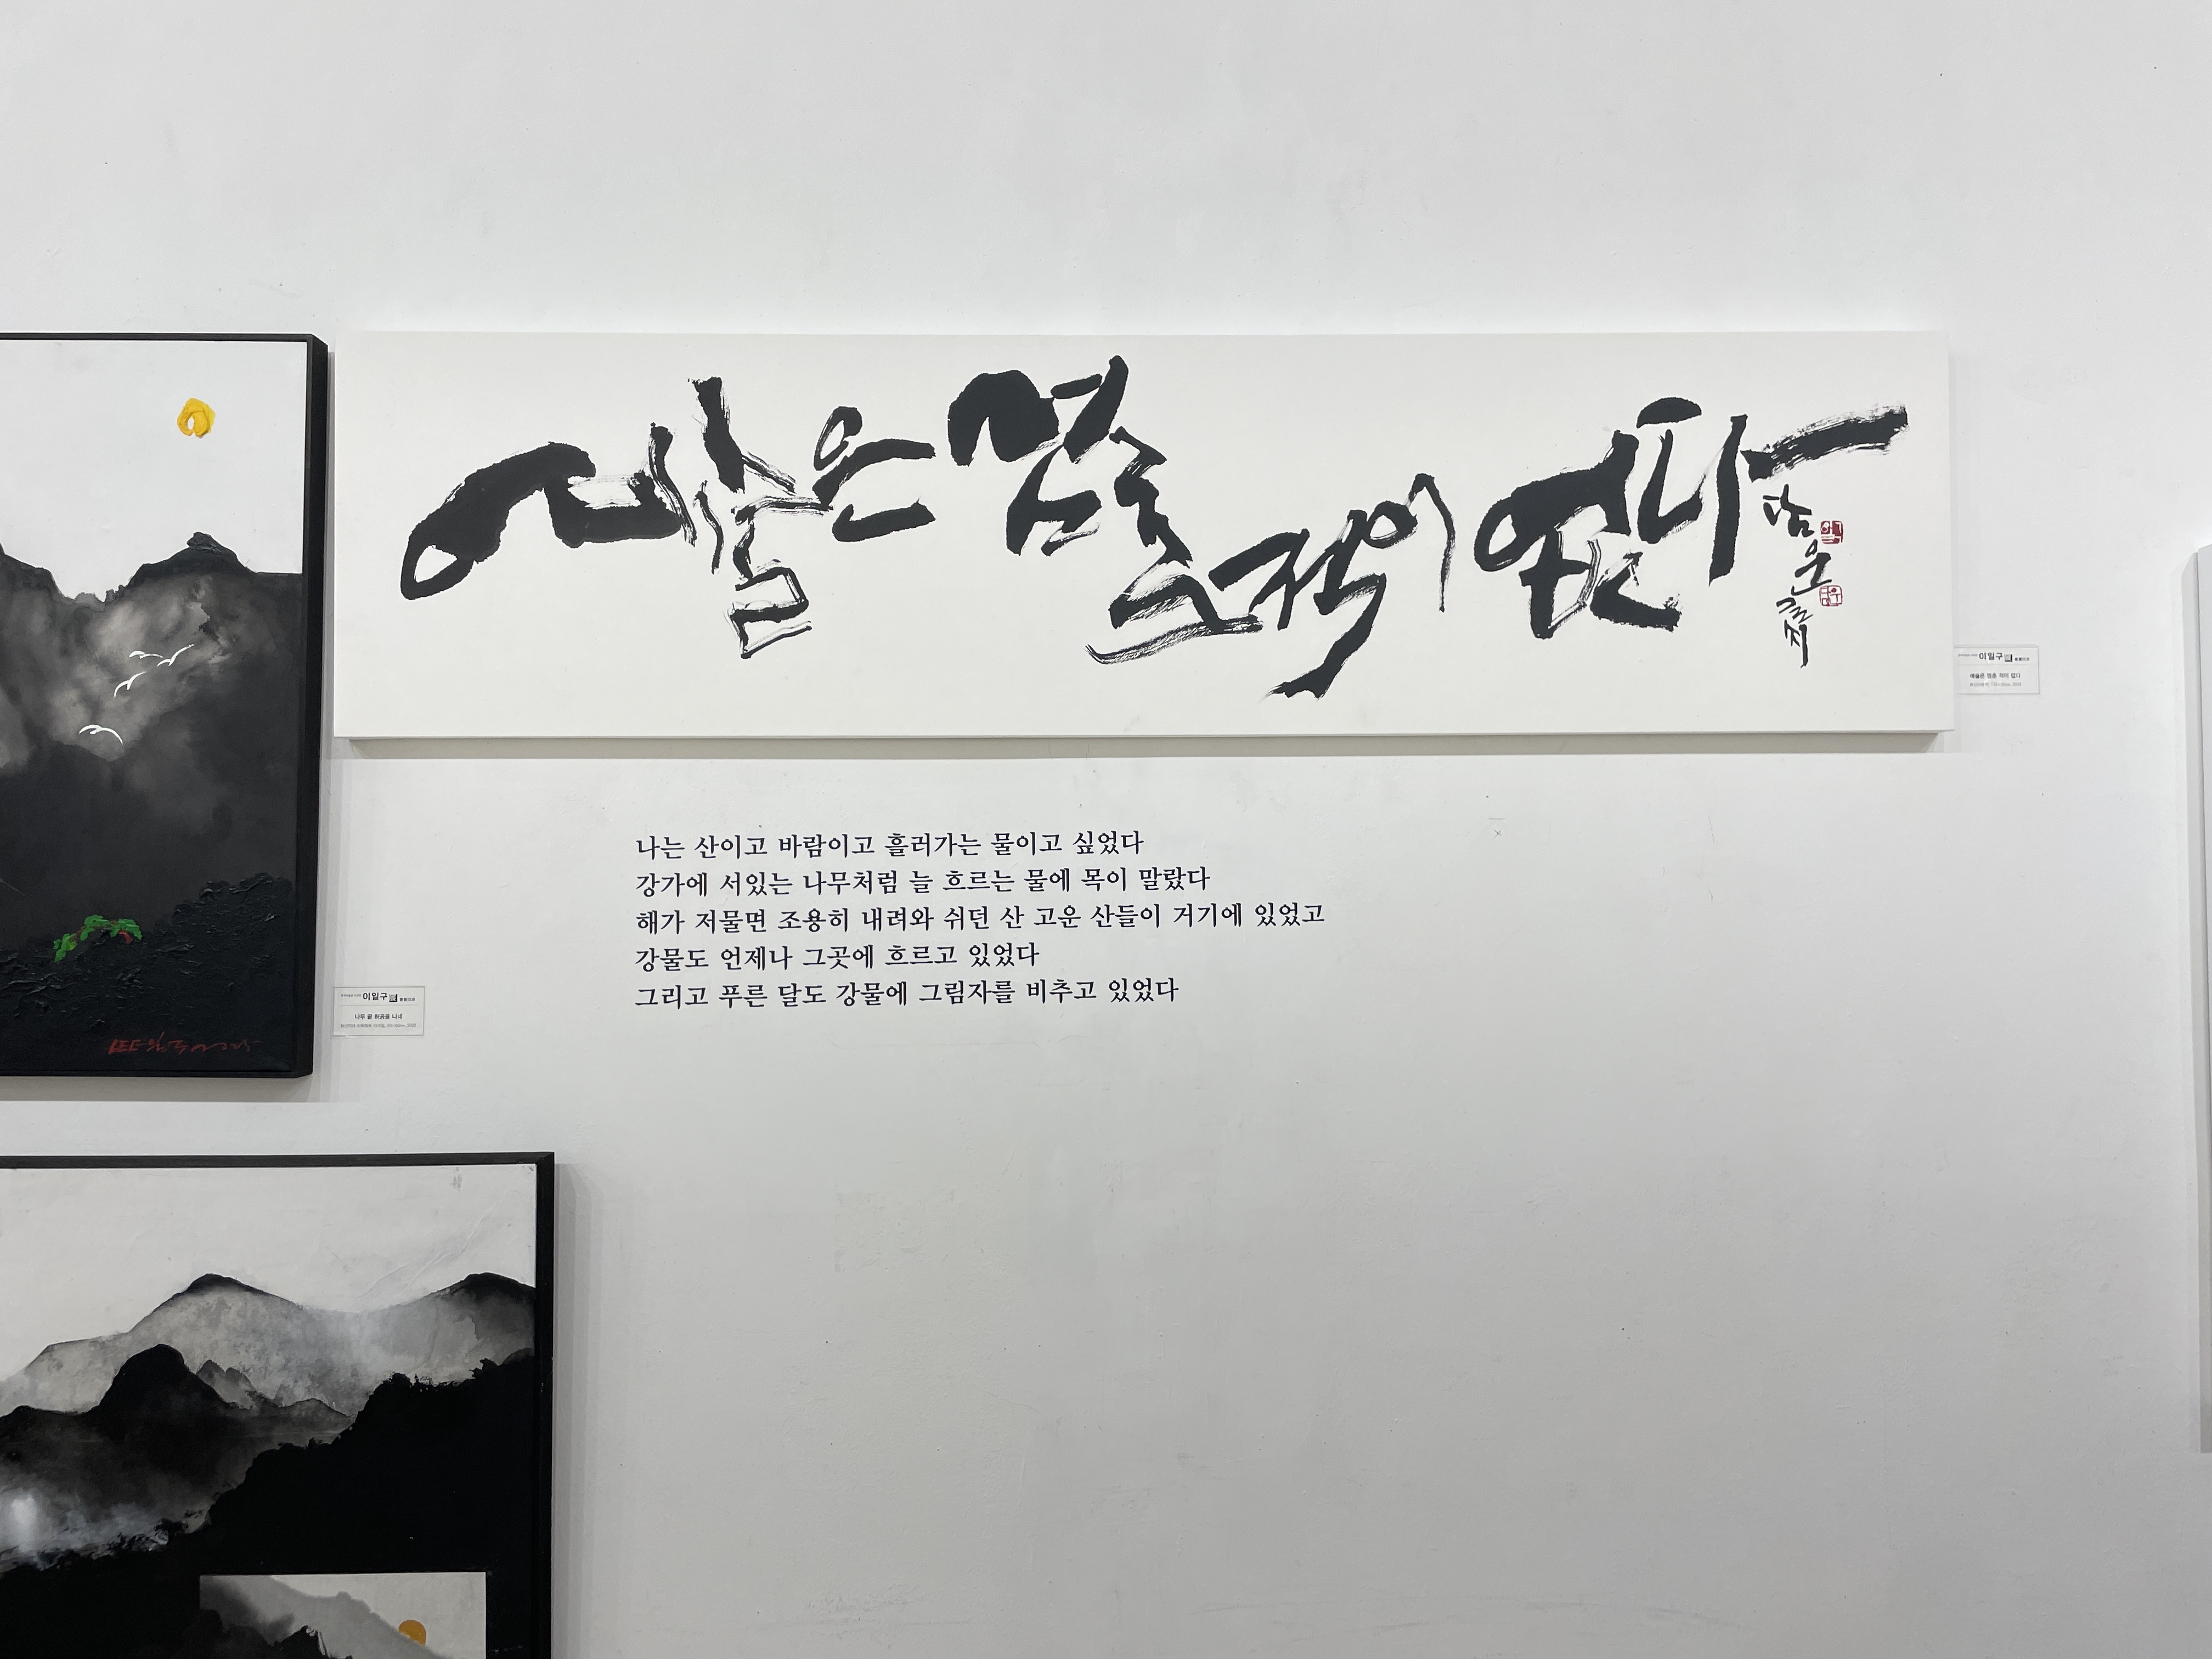 예술은 멈춘 적이 없다
담운
이일구
예술은 멈춘 적이 없다
나는 산이고 바람이고 흘러가는 물이고 싶었다
강가에 서있는 나무처럼 늘 흐르는 물에 목이 말랐다
해가 저물면 조용히 내려와 쉬던 산 고운 산들이 거기에 있었고
강물도 언제나 그곳에 흐르고 있었다
그리고 푸른 달도 강물에 그림자를 비추고 있었다
이일구
나무 끝 허공을 나네
LEE